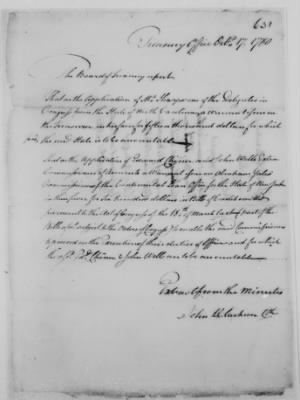 631
Treasury Office Octr. 17. 1780
The Board of Treasury report,
That on the application of Mr. Sharpe one of the Delegates in
Congress from the State of North Carolina, a warrant issue on
the Treasurer in his favor for fifteen thousand dollars for which
the said State is to be accountable
And on the Application of Edward Chinn and John Wells Esqrs
Commissioners of Accounts a Warrant issue on Abraham Yates
Commissioner of the Continental Loan Office for the State of New York
in their favor for Six hundred dollars in Bills of Credit emitted
pursuant to the Act of Congress of the 18th. of March last, and part of the
Bills of subject to the Orders of Congress to enable the said Commissioners
to proceed on the Execution of their duties of Office and for which
the Edwd. Chinn & John Wells are to be accountable.
Extract from the Minutes
John Clarkson